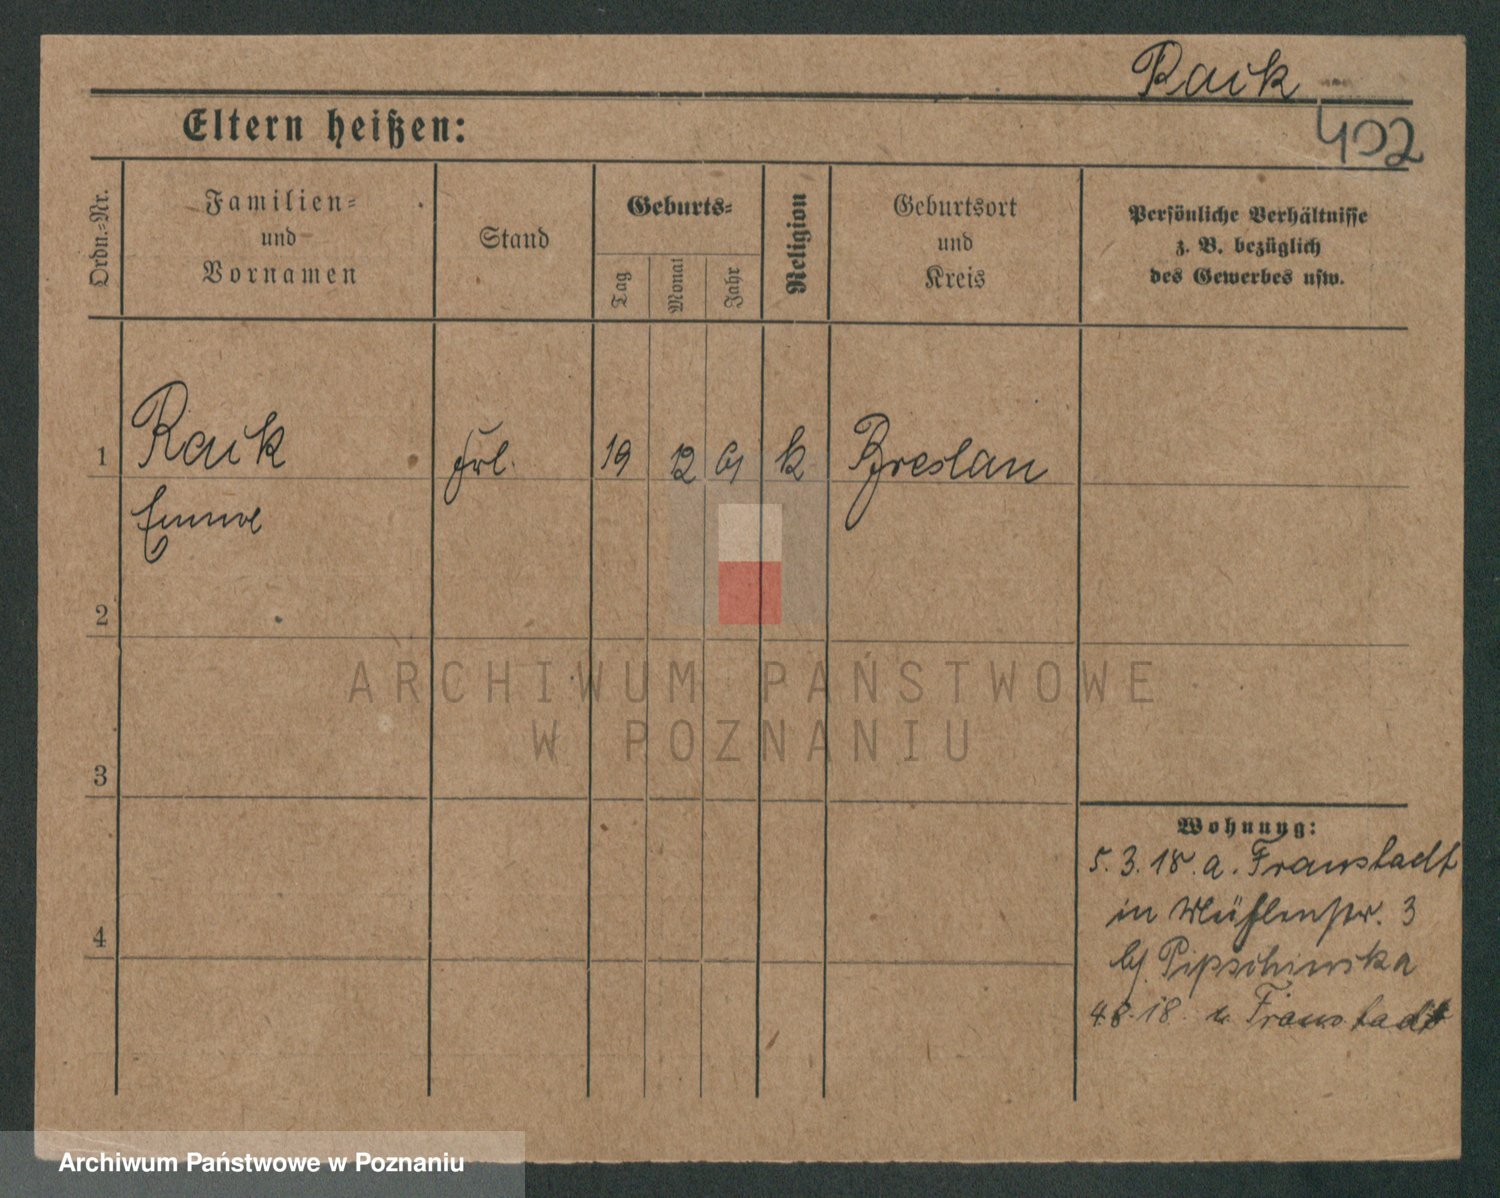 Raik
402
Eltern heißen:
Ordn.-Nr.
Familien-
und
Vornamen
Stand
Geburts-
Tag
Monat
Jahr
Religion
Geburtsort
und
Kreis
Persönliche Verhältnisse
z. B. bezüglich
des Gewerbes usw.
1 Raik Frl. 19 12 01 k Breslau
Emma
2
3
4
ARCHIWUM PAŃSTWOWE
W POZNANIU
Wohnung:
5. 3. 18. a. Fraustadt
in Mühlenstr. 3
b/ Pipschinska
4.8.18 n Fraustadt
Archiwum Państwowe w Poznaniu